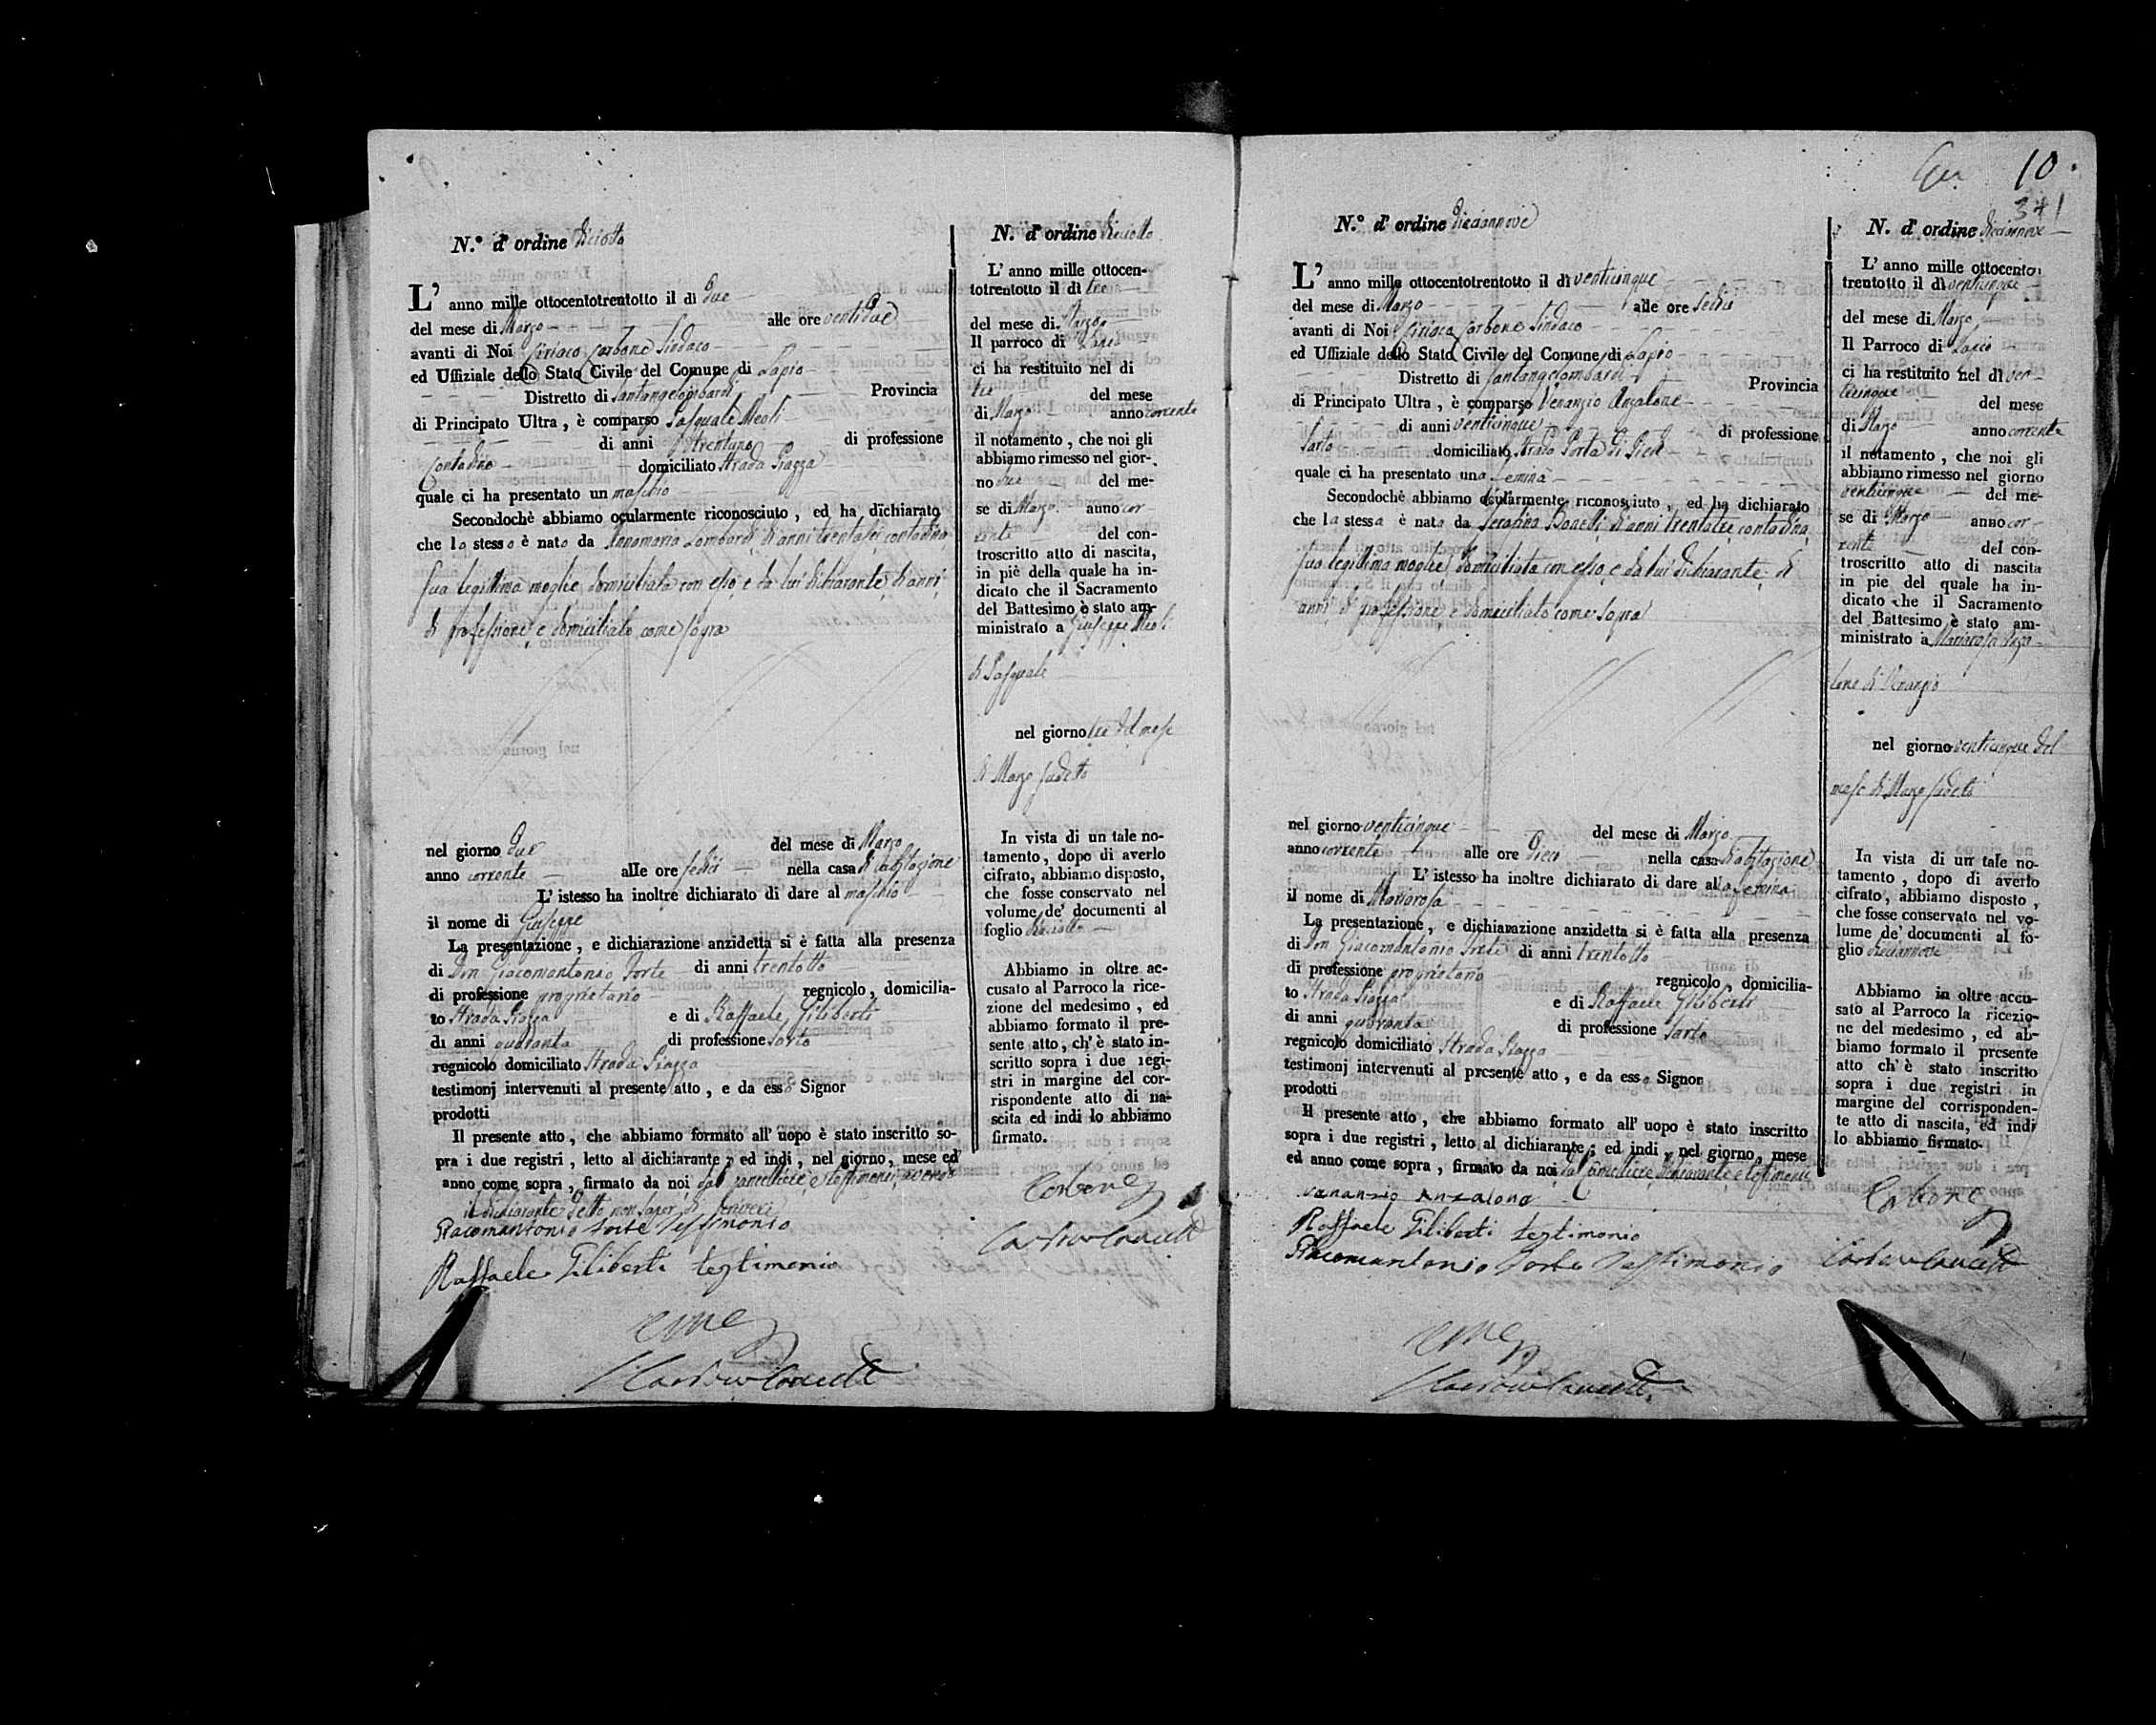 N.° d' ordine diciotto
L' anno mille ottocentotrentotto il dì due
del mese di Marzo alle ore ventidue
avanti di Noi Ciriaco Carbone Sindaco
ed Uffiziale dello Stato Civile del Comune di Lapio
Distretto di Santangelombardi Provincia
di Principato Ultra, è comparso Pasquale Meoli
di anni trentuno di professione
Contadino domiciliato Strada Piazza
quale ci ha presentato un maschio
Secondochè abbiamo ocularmente riconosciuto, ed ha dichiarato
che lo stesso è nato da Annamaria Lombardi di anni trentasei contadina
sua legittima moglie domiciliata con esso, e da lui dichiarante, di anni,
di professione, e domiciliato come sopra
nel giorno due del mese di Marzo
anno corrente alle ore sedici nella casa di abitazione
L' istesso ha inoltre dichiarato di dare al maschio
il nome di Giuseppe
La presentazione, e dichiarazione anzidetta si è fatta alla presenza
di Don Giacomantonio Forte di anni trentotto
di professione proprietario regnicolo, domicilia-
to Strada Piazza e di Raffaele Giliberti
di anni quaranta di professione Sarto
regnicolo domiciliato Strada Piazza
testimonj intervenuti al presente atto, e da esso Signor
prodotti
Il presente atto, che abbiamo formato all' uopo è stato inscritto so-
pra i due registri, letto al dichiarante, ed indi, nel giorno, mese ed
anno come sopra, firmato da noi dal Cancelliere, e testimoni, avendo
il dichiarante detto non saper di scrivere
Giacomantonio Forte Testimonio
Raffaele Giliberti testimonio
N. d' ordine diciotto
L' anno mille ottocen-
totrentotto il dì tre
del mese di Marzo
Il parroco di Lapio
ci ha restituito nel dì
tre del mese
di Marzo anno corrente
il notamento, che noi gli
abbiamo rimesso nel gior-
no due del me-
se di Marzo anno cor-
rente del con-
troscritto atto di nascita,
in piè della quale ha in-
dicato che il Sacramento
del Battesimo è stato am-
ministrato a Giuseppe Meoli
di Pasquale
nel giorno tre del mese
di Marzo sudetto
In vista di un tale no-
tamento, dopo di averlo
cifrato, abbiamo disposto,
che fosse conservato nel
volume de' documenti al
foglio diciotto
Abbiamo in oltre ac-
cusato al Parroco la rice-
zione del medesimo, ed
abbiamo formato il pre-
sente atto, ch' è stato in-
scritto sopra i due regi-
stri in margine del cor-
rispondente atto di na-
scita ed indi lo abbiamo
firmato.
Carbone
10
341
N.° d' ordine diciannove
L' anno mille ottocentotrentotto il dì venticinque
del mese di Marzo alle ore sedici
avanti di Noi Ciriaco Carbone Sindaco
ed Uffiziale dello Stato Civile del Comune di Lapio
Distretto di Santangelombardi Provincia
di Principato Ultra, è comparso Venanzio Anzalone
di anni venticinque di professione
Sarto domiciliato Strada Porta di Piedi
quale ci ha presentato una femina
Secondochè abbiamo ocularmente riconosciuto, ed ha dichiarato
che la stessa è nata da Serafina Bonelli di anni trentatre contadina
sua legittima moglie domiciliata con esso, e da lui dichiarante, di
anni, di professione, e domiciliato come sopra
nel giorno venticinque del mese di Marzo
anno corrente alle ore dieci nella casa di abitazione
L' istesso ha inoltre dichiarato di dare alla femina
il nome di Mariarosa
La presentazione, e dichiarazione anzidetta si è fatta alla presenza
di Don Giacomantonio Forte di anni trentotto
di professione proprietario regnicolo, domicilia-
to Strada Piazza e di Raffaele Giliberti
di anni quaranta di professione Sarto
regnicolo domiciliato Strada Piazza
testimonj intervenuti al presente atto, e da esso Signor
prodotti
Il presente atto, che abbiamo formato all' uopo è stato inscritto
sopra i due registri, letto al dichiarante, ed indi, nel giorno, mese
ed anno come sopra, firmato da noi dal Cancelliere, dichiarante, e testimoni
Vananzio Anzalona
Raffaele Giliberti testimonio
Giacomantonio Forte Testimonio
N. d' ordine diciannove
L' anno mille ottocento
trentotto il dì venticinque
del mese di Marzo
Il Parroco di Lapio
ci ha restituito nel dì ven-
ticinque del mese
di Marzo anno corrente
il notamento, che noi gli
abbiamo rimesso nel giorno
venticinque del me-
se di Marzo anno cor-
rente del con-
troscritto atto di nascita
in piè del quale ha in-
dicato che il Sacramento
del Battesimo è stato am-
ministrato a Mariarosa Anza-
lone di Venanzio
nel giorno venticinque del
mese di Marzo sudetto
In vista di un tale no-
tamento, dopo di averlo
cifrato, abbiamo disposto,
che fosse conservato nel vo-
lume de' documenti al fo-
glio diciannove
Abbiamo in oltre accu-
sato al Parroco la ricezio-
ne del medesimo, ed ab-
biamo formato il presente
atto ch' è stato inscritto
sopra i due registri in
margine del corrisponden-
te atto di nascita, ed indi
lo abbiamo firmato.
Carbone